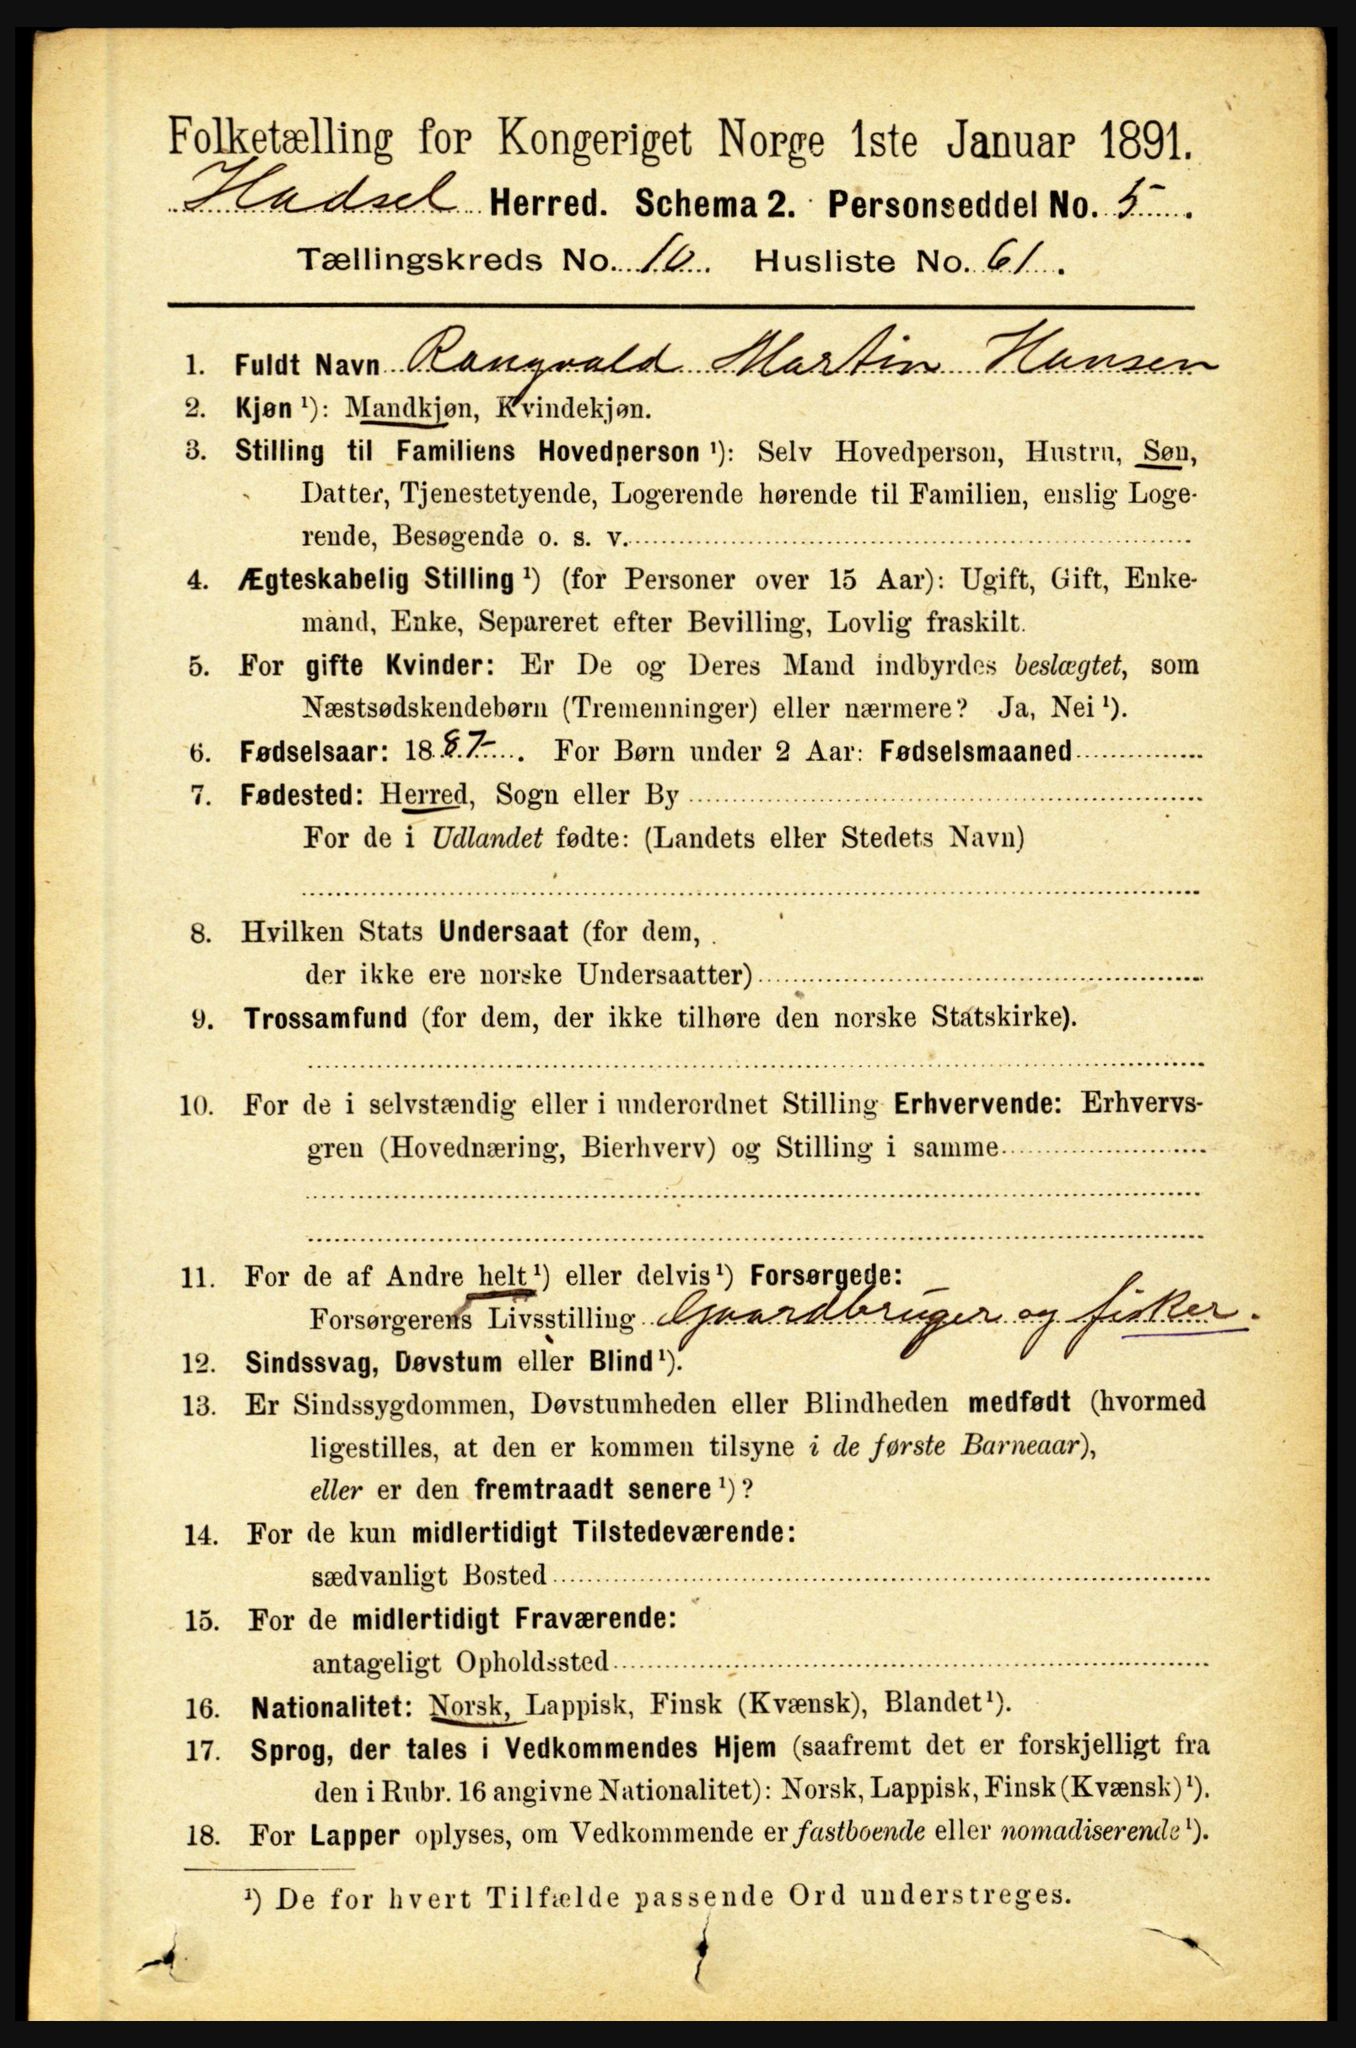 Folketælling for Kongeriget Norge 1ste Januar 1891.
Hadsel Herred. Schema 2. Personseddel No. 5.
Tællingskreds No. 10. Husliste No. 61.
1. Fuldt Navn Rangvald Martin Hansen
2. Kjøn ¹): Mandkjøn, Kvindekjøn.
3. Stilling til Familiens Hovedperson ¹): Selv Hovedperson, Hustru, Søn,
Datter, Tjenestetyende, Logerende hørende til Familien, enslig Loge-
rende, Besøgende o. s. v.
4. Ægteskabelig Stilling ¹) (for Personer over 15 Aar): Ugift, Gift, Enke-
mand, Enke, Separeret efter Bevilling, Lovlig fraskilt.
5. For gifte Kvinder: Er De og Deres Mand indbyrdes beslægtet, som
Næstsødskendebørn (Tremenninger) eller nærmere? Ja, Nei ¹).
6. Fødselsaar: 1887. For Børn under 2 Aar: Fødselsmaaned
7. Fødested: Herred, Sogn eller By
For de i Udlandet fødte: (Landets eller Stedets Navn)
8. Hvilken Stats Undersaat (for dem,
der ikke ere norske Undersaatter)
9. Trossamfund (for dem, der ikke tilhøre den norske Statskirke).
10. For de i selvstændig eller i underordnet Stilling Erhvervende: Erhvervs-
gren (Hovednæring, Bierhverv) og Stilling i samme
11. For de af Andre helt ¹) eller delvis ¹) Forsørgede:
Forsørgerens Livsstilling Gaardbruger og fisker.
12. Sindssvag, Døvstum eller Blind ¹).
13. Er Sindssygdommen, Døvstumheden eller Blindheden medfødt (hvormed
ligestilles, at den er kommen tilsyne i de første Barneaar),
eller er den fremtraadt senere ¹)?
14. For de kun midlertidigt Tilstedeværende:
sædvanligt Bosted
15. For de midlertidigt Fraværende:
antageligt Opholdssted
16. Nationalitet: Norsk, Lappisk, Finsk (Kvænsk), Blandet ¹).
17. Sprog, der tales i Vedkommendes Hjem (saafremt det er forskjelligt fra
den i Rubr. 16 angivne Nationalitet): Norsk, Lappisk, Finsk (Kvænsk) ¹).
18. For Lapper oplyses, om Vedkommende er fastboende eller nomadiserende ¹).
¹) De for hvert Tilfælde passende Ord understreges.